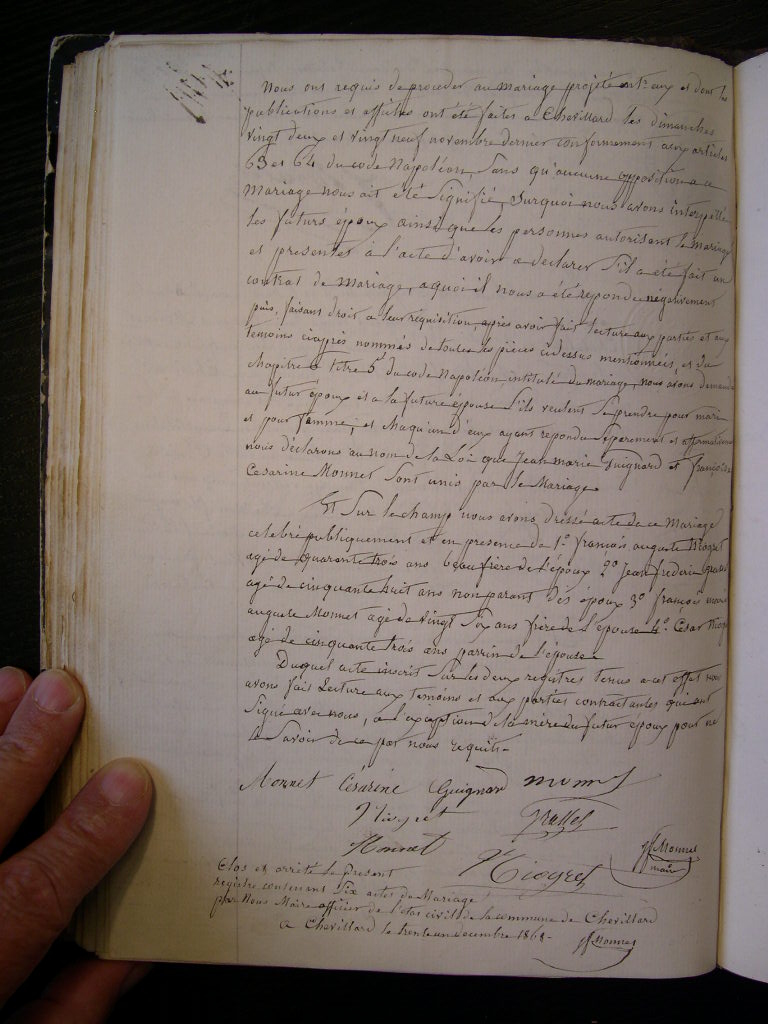 Nous ont requis de proceder au mariage projeté entr eux et dont les
publications et affiches ont été faites a Chevillard les dimanches
vingt deux et vingt neuf novembre dernier conformement aux articles
63 et 64 du code Napoléon, Sans qu'aucune opposition a ce
mariage nous ait été Signifié, Surquoi nous avons interpellé
les futurs époux ainsi que les personnes autorisant le mariage
et presentes à l'acte d'avoir a declarer S'il a été fait un
contrat de mariage, a quoi il nous a été repondu négativement
puis, faisant droit a leur réquisition, après avoir fait lecture aux parties et aux
temoins ciaprès nommés de toutes les pièces cidessus mentionnées, et du
chapitre 6 titre 5 du code Napoléon intitulé du mariage, nous avons demandé
au futur époux et a la future épouse S'ils veulent Se prendre pour mari
et pour femme, et chaqu'un d'eux ayant repondu Séparement et affirmativement
nous déclarons au nom de la Loi que Jean marie Guignard et françoise
Cesarine Monnet Sont unis par le Mariage.
Et Sur le champ nous avons dressé acte de ce Mariage
celebré publiquement et en presence de 1º françois auguste
agé de quarante trois ans beau frère de l'époux 2º Jean frederic
agé de cinquante huit ans non parant des epoux 3º françois marie
auguste Monnet agé de vingt Six ans frère de l'epouse 4º César
agé de cinquante trois ans parrin de l'épouse.
Duquel acte inscrit Sur les deux registres tenus a cet effet nous
avons fait Lecture aux temoins et aux parties contractantes qui ont
Signé avec nous, a l'exception de la mère du futur epoux pour ne
le Savoir de ce par nous requis.
Monnet Césarine Guignard Monnet
Monnet
J f Monnet
maire
Clos et arrêté le present
registre contenant Six actes de Mariage
par Nous Maire officier de l'état civil de la commune de Chevillard
a Chevillard le trente un décembre 1868.
J f Monnet